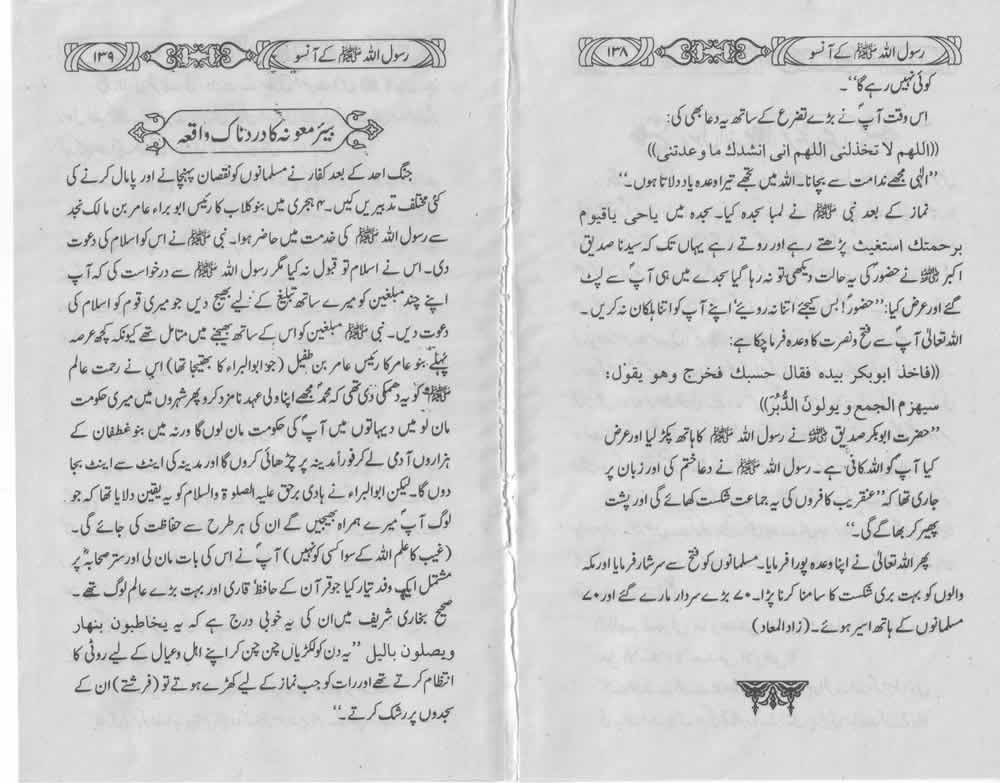 رسول اللہ ﷺ کے آنسو ۱۳۸
کوئی نہیں رہے گا‘‘۔
اس وقت آپؐ نے بڑے تضرع کے ساتھ یہ دعا بھی کی:
((اللهم لا تخذلنى اللهم انى انشدك ما وعدتنى))
’’الٰہی مجھے ندامت سے بچانا۔ اللہ میں تجھے تیرا وعدہ یاد دلاتا ہوں۔‘‘
نماز کے بعد نبی ﷺ نے لمبا سجدہ کیا۔ سجدہ میں یاحی یاقیوم
برحمتك استغیث پڑھتے رہے اور روتے رہے یہاں تک کہ سیدنا صدیق
اکبرؓ نے حضورؐ کی یہ حالت دیکھی تو نہ رہا گیا سجدے میں ہی آپؐ سے لپٹ
گئے اور عرض کیا: ’’حضورؐ! بس کیجئے اتنا نہ رویئے اپنے آپ کو اتنا ہلکان نہ کریں۔
اللہ تعالیٰ آپؐ سے فتح و نصرت کا وعدہ فرما چکا ہے:
((فاخذ ابوبکر بیده فقال حسبك فخرج وهو یقول:
سیهزم الجمع و یولون الدُّبُرَ))
’’حضرت ابوبکر صدیقؓ نے رسول اللہ ﷺ کا ہاتھ پکڑ لیا اور عرض
کیا آپؐ کو اللہ کافی ہے۔ رسول اللہ ﷺ نے دعا ختم کی اور زبان پر
جاری تھا کہ ’’عنقریب کافروں کی یہ جماعت شکست کھائے گی اور پشت
پھیر کر بھاگے گی۔‘‘
پھر اللہ تعالیٰ نے اپنا وعدہ پورا فرمایا۔ مسلمانوں کو فتح سے سرشار فرمایا اور مکہ
والوں کو بہت بری شکست کا سامنا کرنا پڑا۔ ۷۰ بڑے سردار مارے گئے اور ۷۰
مسلمانوں کے ہاتھ اسیر ہوئے۔ (زاد المعاد)
رسول اللہ ﷺ کے آنسو ۱۳۹
بیئر معونہ کا دردناک واقعہ
جنگ احد کے بعد کفار نے مسلمانوں کو نقصان پہنچانے اور پامال کرنے کی
کئی مختلف تدبیریں کیں۔ ۴ ہجری میں بنو کلاب کا رئیس ابو براء عامر بن مالک نجد
سے رسول اللہ ﷺ کی خدمت میں حاضر ہوا۔ نبی ﷺ نے اس کو اسلام کی دعوت
دی۔ اس نے اسلام تو قبول نہ کیا مگر رسول اللہ ﷺ سے درخواست کی کہ آپ
اپنے چند مبلغین کو میرے ساتھ تبلیغ کے لیے بھیج دیں جو میری قوم کو اسلام کی
دعوت دیں۔ نبی ﷺ مبلغین کو اس کے ساتھ بھیجنے میں متامل تھے کیونکہ کچھ عرصہ
پہلے بنو عامر کا رئیس عامر بن طفیل (جو ابوالبراء کا بھتیجا تھا) اس نے رحمت عالم
ﷺ کو یہ دھمکی دی تھی کہ محمدؐ مجھے اپنا ولی عہد نامزد کرو پھر شہروں میں میری حکومت
مان لو میں دیہاتوں میں آپؐ کی حکومت مان لوں گا ورنہ میں بنو غطفان کے
ہزاروں آدمی لے کر فوراً مدینہ پر چڑھائی کروں گا اور مدینہ کی اینٹ سے اینٹ بجا
دوں گا۔ لیکن ابوالبراء نے ہادی برحق علیہ الصلوٰۃ والسلام کو یہ یقین دلایا تھا کہ جو
لوگ آپؐ میرے ہمراہ بھیجیں گے ان کی ہر طرح سے حفاظت کی جائے گی۔
(غیب کا علم اللہ کے سوا کسی کو نہیں) آپؐ نے اس کی بات مان لی اور ستر صحابہؓ پر
مشتمل ایک وفد تیار کیا جو قرآن کے حافظ، قاری اور بہت بڑے عالم لوگ تھے۔
صحیح بخاری شریف میں ان کی یہ خوبی درج ہے کہ یہ یخاطبون بنهار
ویصلون بالیل ’’یہ دن کو لکڑیاں چن چن کر اپنے اہل و عیال کے لیے روٹی کا
انتظام کرتے تھے اور رات کو جب نماز کے لیے کھڑے ہوتے تو (فرشتے) ان کے
سجدوں پر رشک کرتے۔‘‘